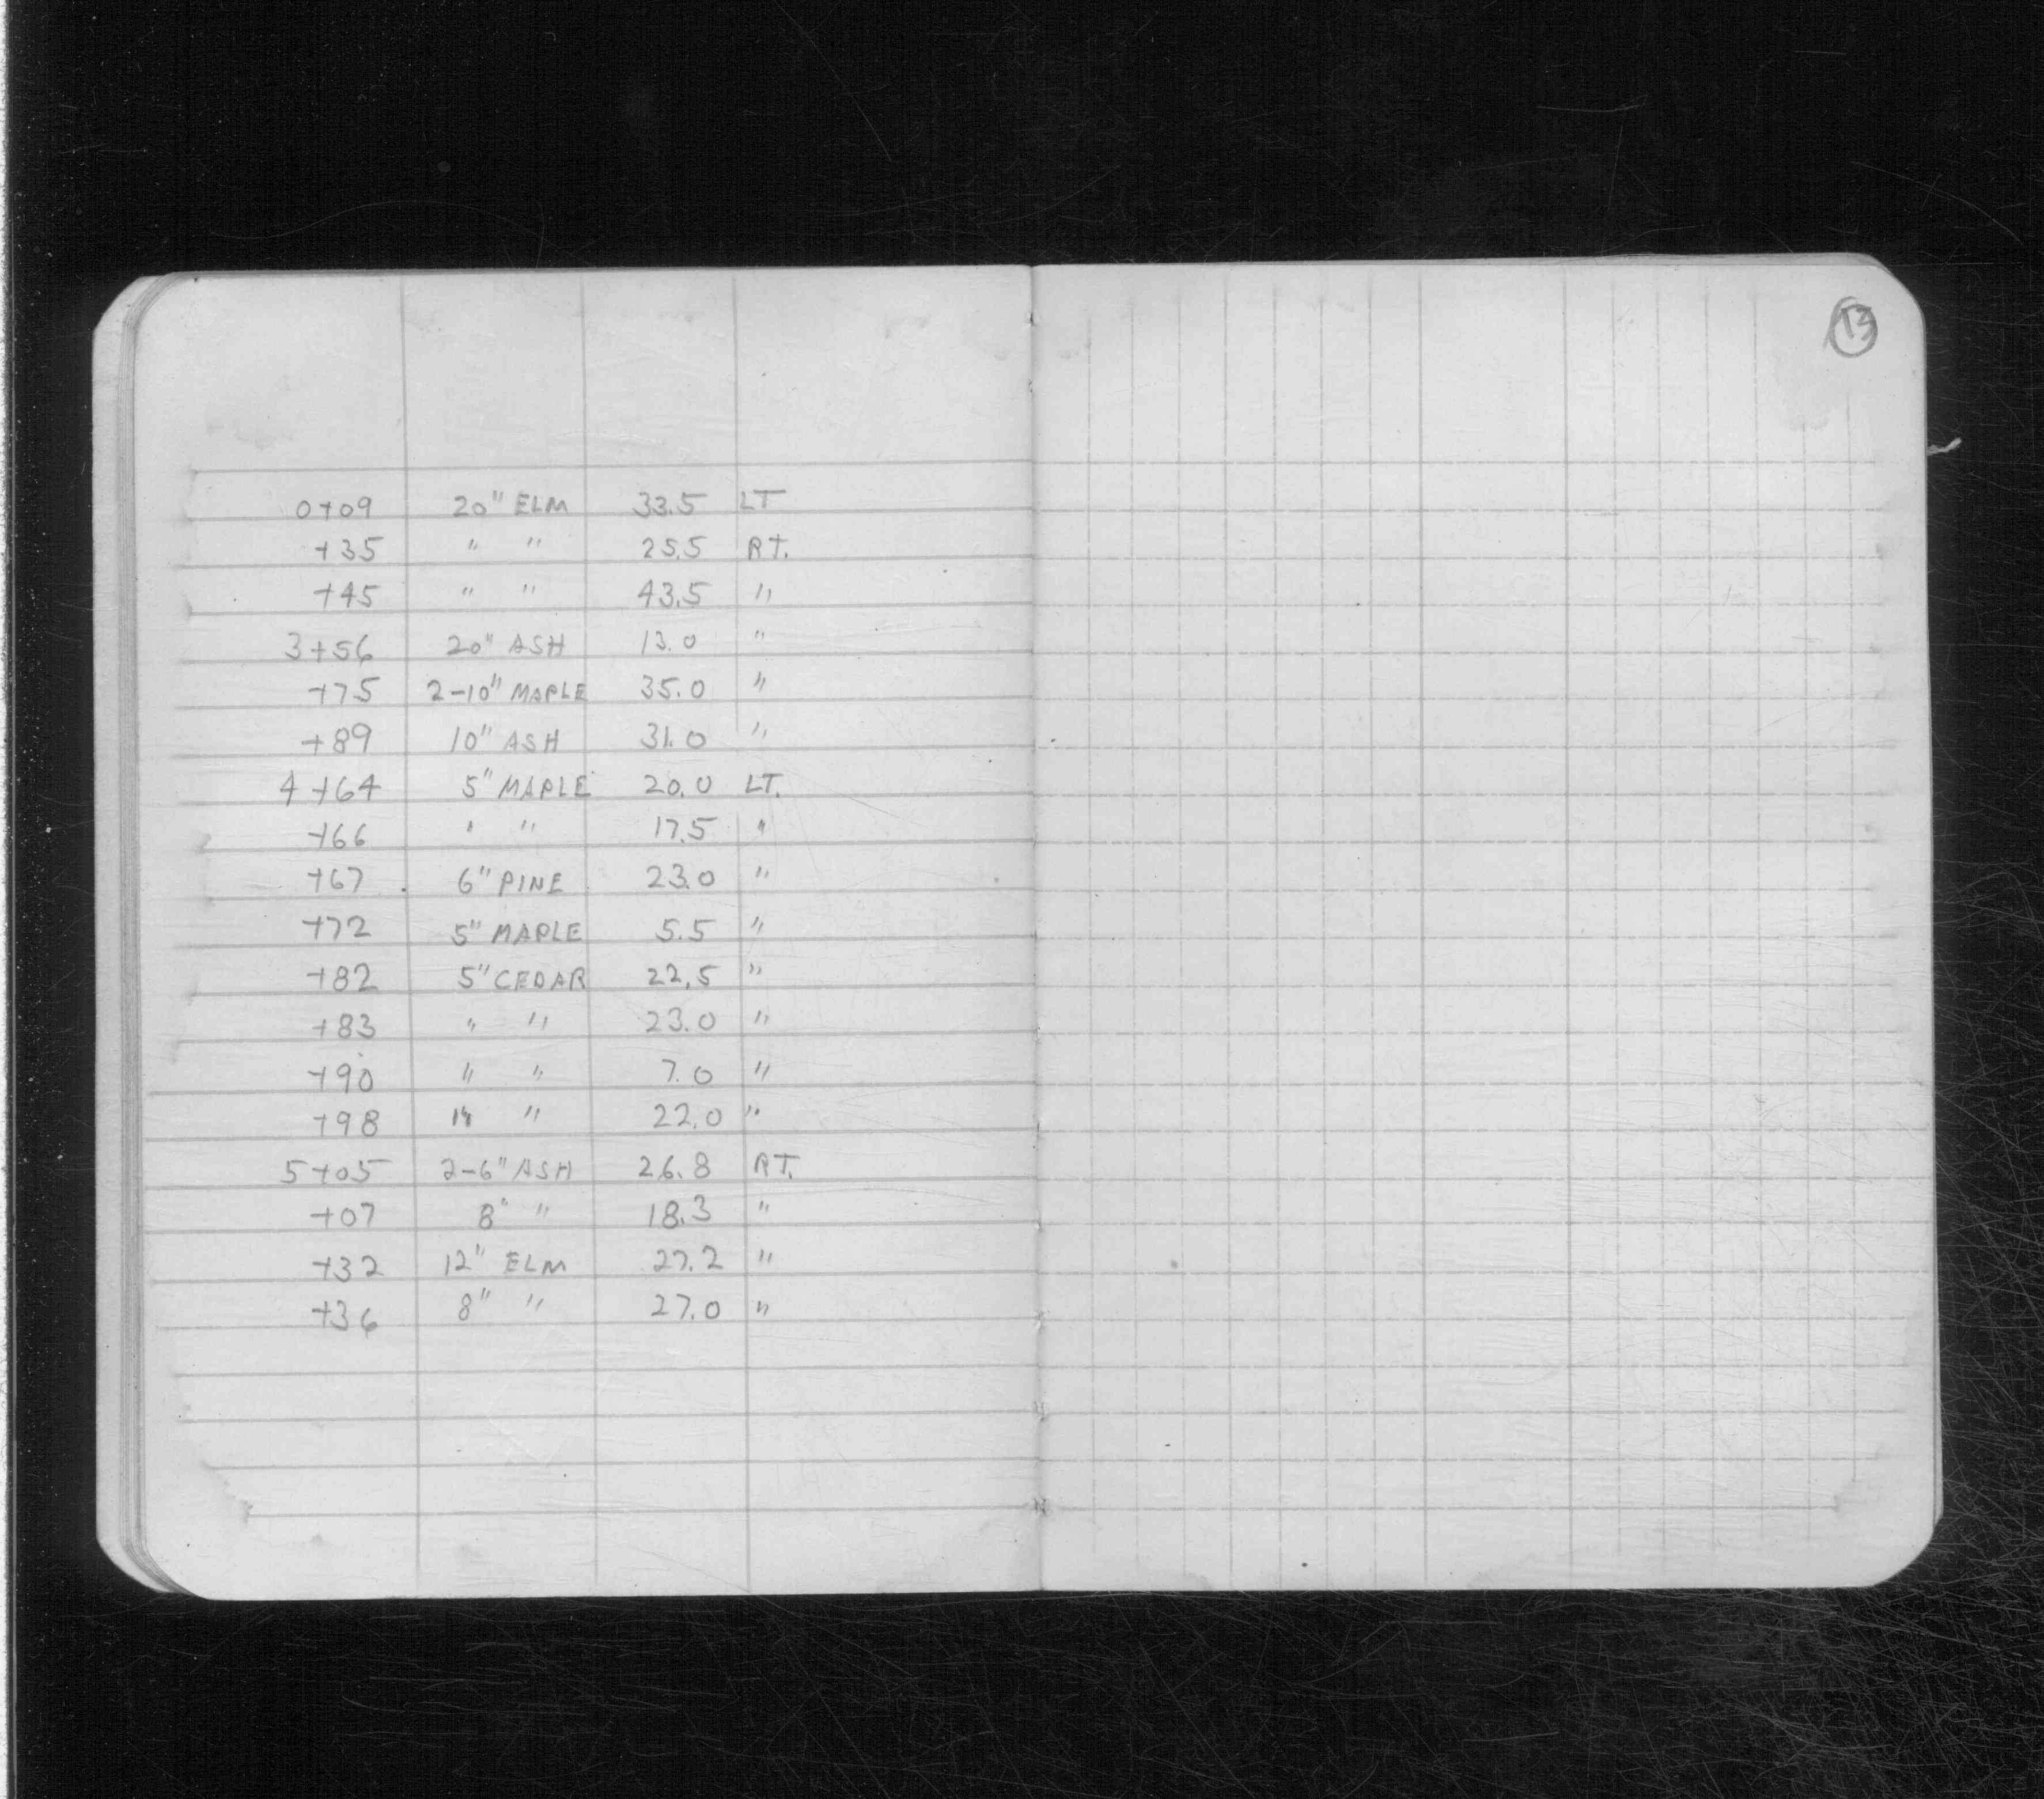 0+09 20" ELM 33.5 LT
+35 " " 25.5 RT.
+45 " " 43.5 "
3+56 20" ASH 13.0 "
+75 2-10" MAPLE 35.0 "
+89 10" ASH 31.0 "
4+64 5" MAPLE 20.0 LT.
+66 " " 17.5 "
+67 6" PINE 23.0 "
+72 5" MAPLE 5.5 "
+82 5" CEDAR 22.5 "
+83 " " 23.0 "
+90 " " 7.0 "
+98 " " 22.0 "
5+05 2-6" ASH 26.8 RT.
+07 8" " 18.3 "
+32 12" ELM 27.2 "
+36 8" " 27.0 "
13